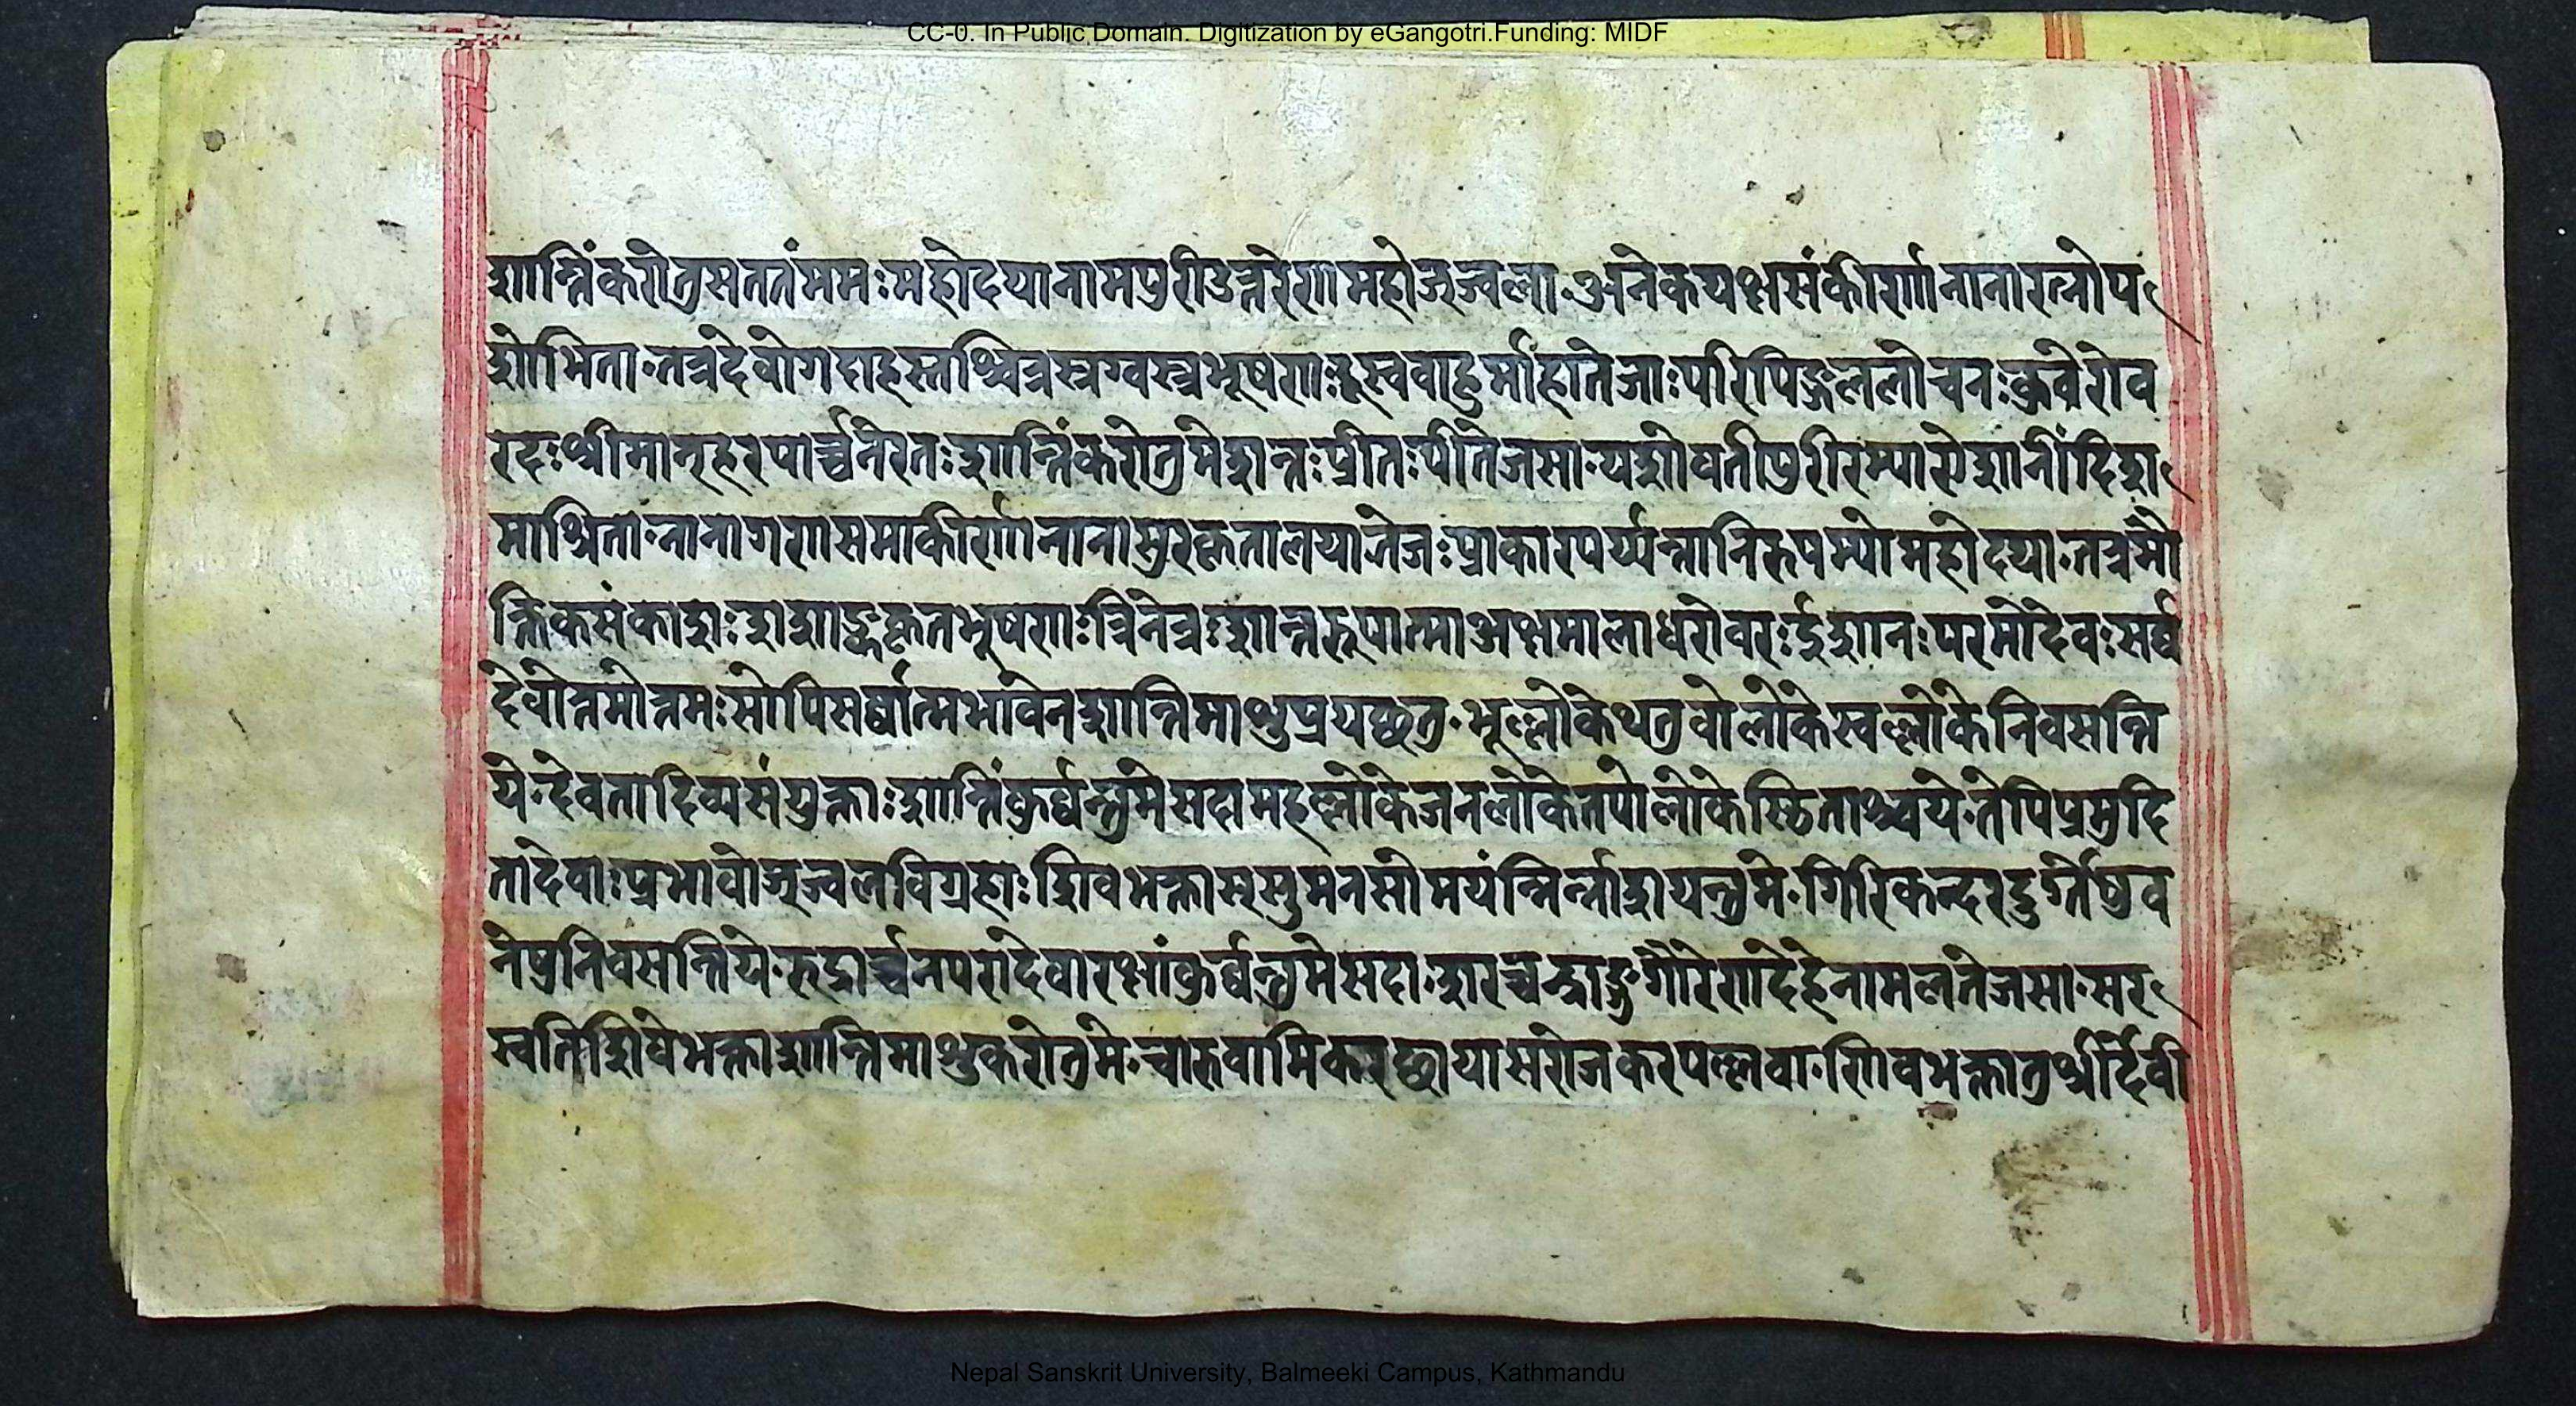 CC-0. In Public Domain. Digitization by eGangotri.Funding: MIDF
शान्तिंकरोतुसततंममःमहोदयानामपुरीउत्तरेणमहोज्ज्वला॰अनेकयक्षसंकीर्णानानारत्नोप
शोभिता॰तत्रदेवोगदाहस्तश्चित्रस्रग्वस्त्रभूषणःह्रस्ववाहुर्माहातेजाःपरिपिङ्गललोचनःकुवेरोव
रदःश्रीमान्हरपार्च्चनेरतःशान्तिंकरोतुमेशान्तःप्रीतःपीतेजसा॰यशोवतीपुरीरम्याऐशानींदिश
माश्रिता॰नानागणसमाकीर्णानानासुरकृतालयातेजःप्राकारपर्य्यन्तानिरुपम्यामहोदया॰तत्रमौ
क्तिकसंकाशःशशाङ्ककृतभूषणःत्रिनेत्रःशान्तरूपात्माअक्षमालाधरोवरःईशानःपरमोदेवःसर्व्व
देवोत्तमोत्तमःसोपिसर्व्वात्मभावेनशान्तिमाशुप्रयछतु॰भूल्लोकेथतुवोलोकेस्वल्लोकेनिवसन्ति
ये॰देवतादिव्यसंयुक्ताःशान्तिंकुर्व्वन्तुमेसदामहल्लोकेजनलोकेतपोलोकेस्थिताश्चये॰तेपिप्रमुदि
तादेवाःप्रभावोज्ज्वलविग्रहाःशिवभक्तासूसुमनसोमयंन्निर्न्नाशयन्तुमे॰गिरिकन्दरदुर्ग्गेषुव
नेषुनिवसन्तिये॰रुद्रार्च्चनपरादेवारक्षांकुर्व्वन्तुमेसदा॰शरच्चन्द्राङ्गुगौरेणदेहेनामलतेजसा॰सर
स्वतिशिवेभक्ताशान्तिमाशुकरोतुमे॰चारुवामिकरछायासरोजकरपल्लवा॰शिवभक्तातुश्रीर्देवी
Nepal Sanskrit University, Balmeeki Campus, Kathmandu